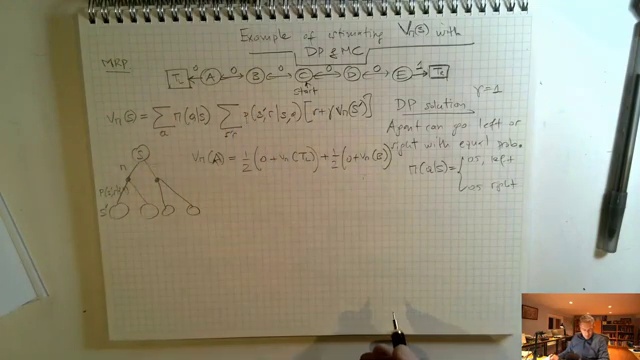 Example of estimating Vπ(s) with
DP & MC
MRP
0 0 0 0 0 1
TL A B C D E TR
start
Vπ(s) = Σa π(a|s) Σs',r p(s',r|s,a) [r + γ Vπ(s')]
DP solution γ=1
Agent can go left or
right with equal prob.
π(a|s) = { 0.5, left
0.5 right
Vπ(A) = 1/2 (0 + vπ(TL)) + 1/2 (0 + vπ(B))
S
π
s'